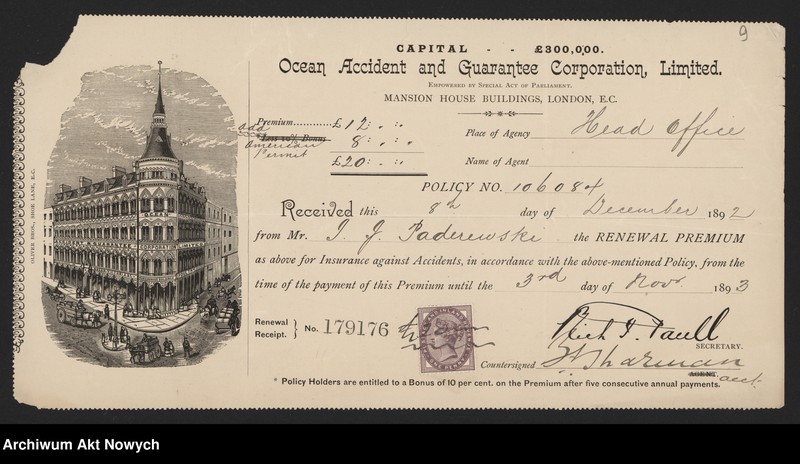 9
CAPITAL - - £300,000.
Ocean Accident and Guarantee Corporation, Limited.
Empowered by Special Act of Parliament.
MANSION HOUSE BUILDINGS, LONDON, E.C.
Premium............£12 : " : "
add
Less 10% Bonus 8 : " : "
American
Permit
£20 : " : "
Place of Agency Head Office
Name of Agent
POLICY NO. 106084
Received this 8th day of December 1892
from Mr. I. J. Paderewski the RENEWAL PREMIUM
as above for Insurance against Accidents, in accordance with the above-mentioned Policy, from the
time of the payment of this Premium until the 3rd day of Nov. 1893
Renewal
Receipt. } No. 179176
Rich J. Paull
SECRETARY.
Countersigned Sharman
AGENT.
acct.
* Policy Holders are entitled to a Bonus of 10 per cent. on the Premium after five consecutive annual payments.
OLIVER BROS., SHOE LANE, E.C.
OCEAN
CORPORATION
Archiwum Akt Nowych